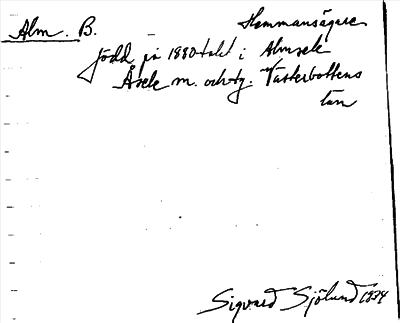 Alm. B. Hemmansägare
född på 1880talet i Almsele
Åsele m. och tg. Västerbottens
län
Sigvard Sjölund 1934